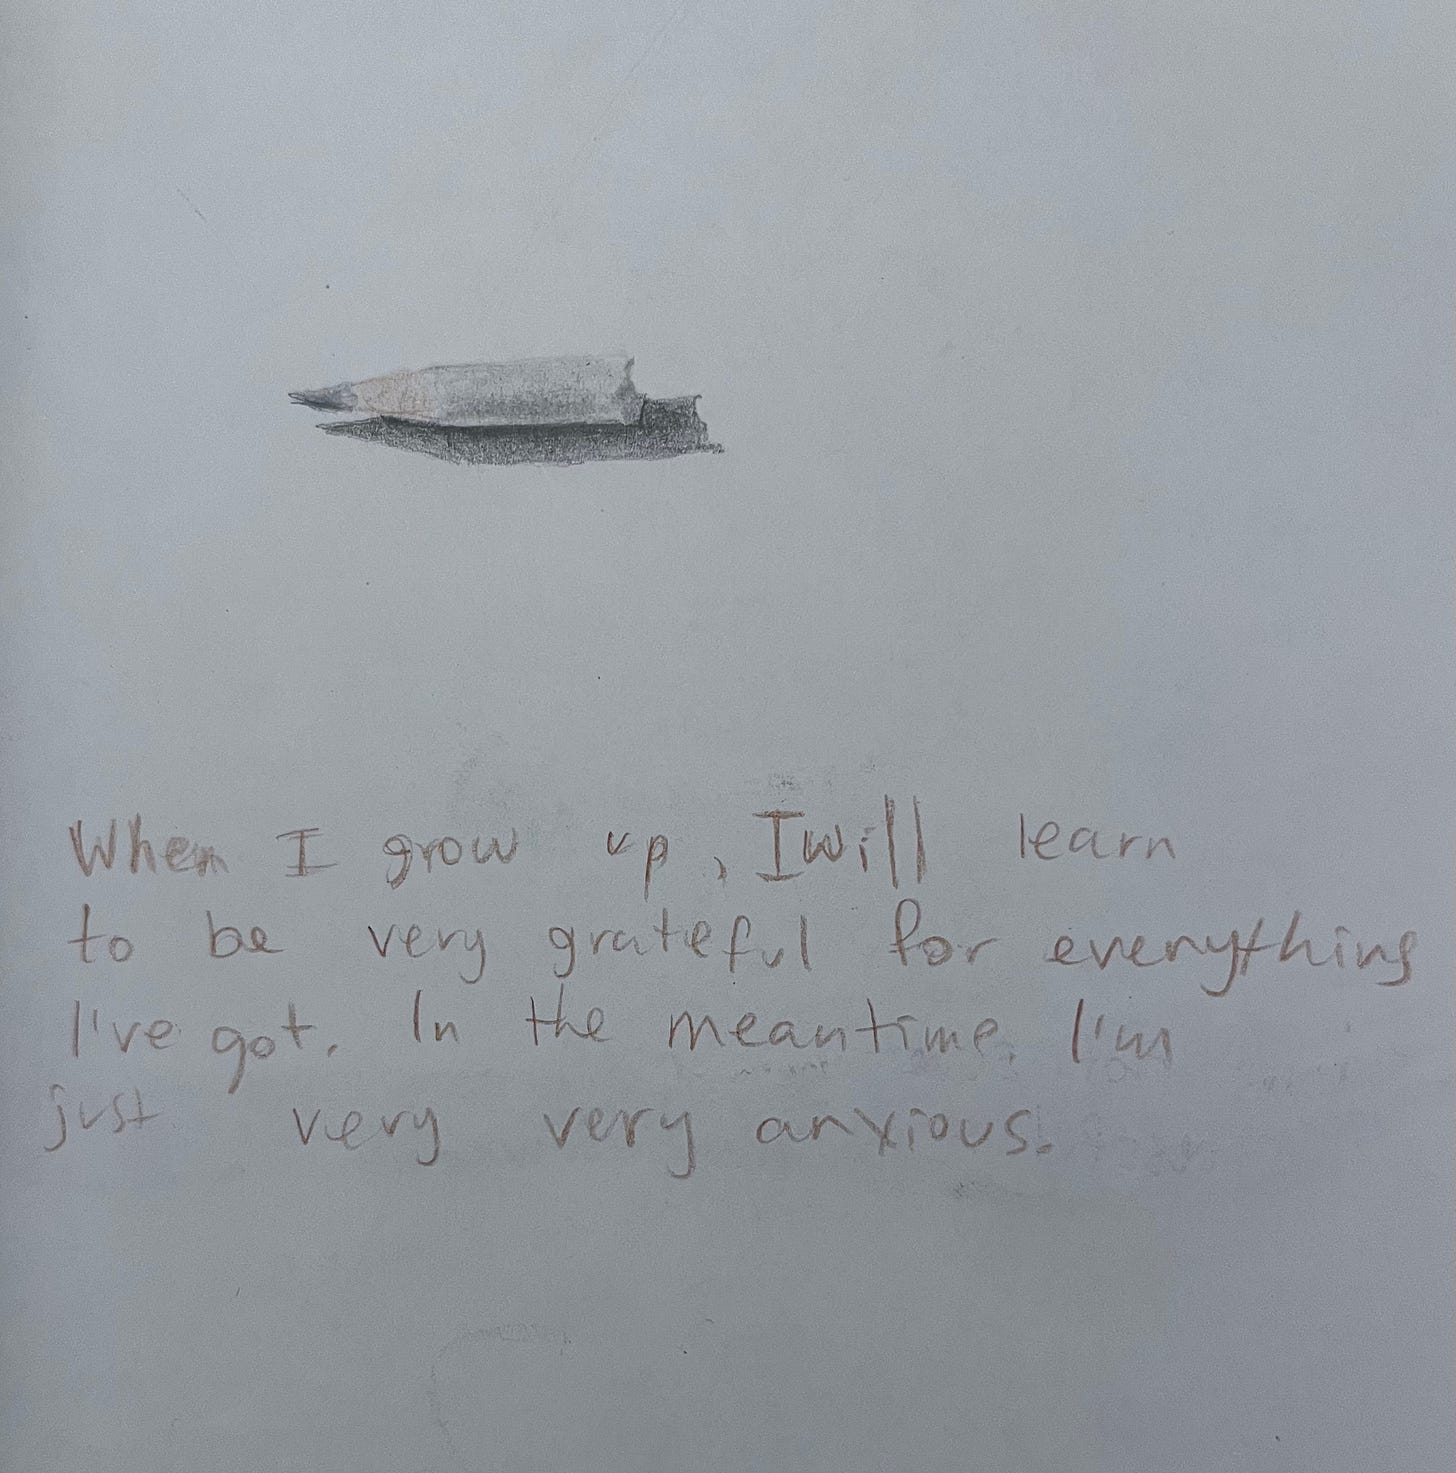 When I grow up, I will learn
to be very grateful for everything
I've got. In the meantime. I'm
just very very anxious.